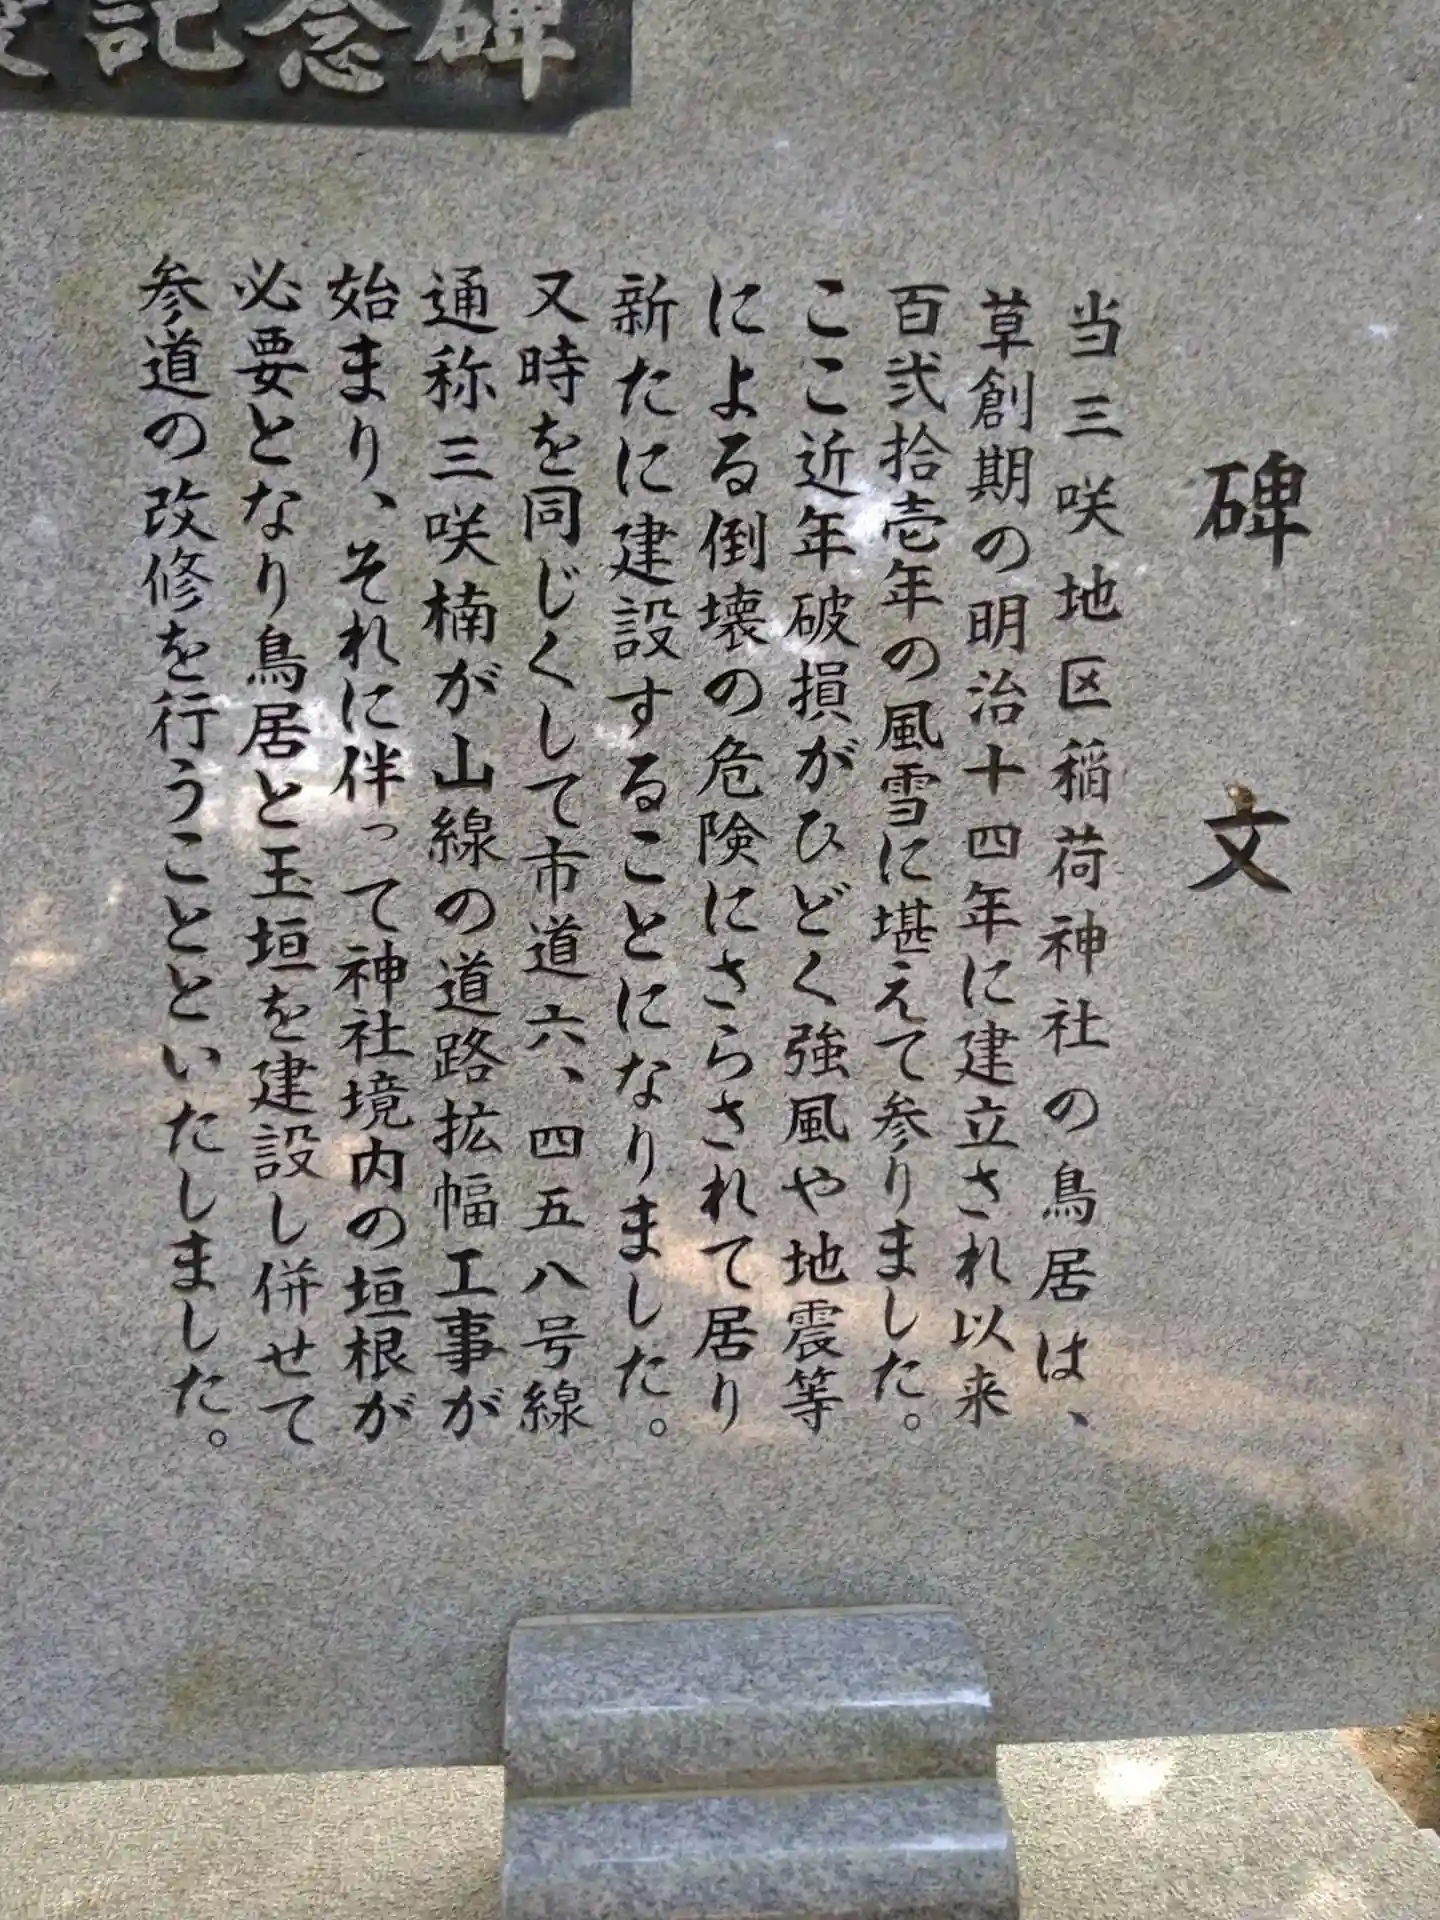 記念碑
碑文
当三咲地区稲荷神社の鳥居は、
草創期の明治十四年に建立され以来
百弐拾壱年の風雪に堪えて参りました。
ここ近年破損がひどく強風や地震等
による倒壊の危険にさらされて居り
新たに建設することになりました。
又時を同じくして市道六、四五八号線
通称三咲楠が山線の道路拡幅工事が
始まり、それに伴って神社境内の垣根が
必要となり鳥居と玉垣を建設し併せて
参道の改修を行うことといたしました。